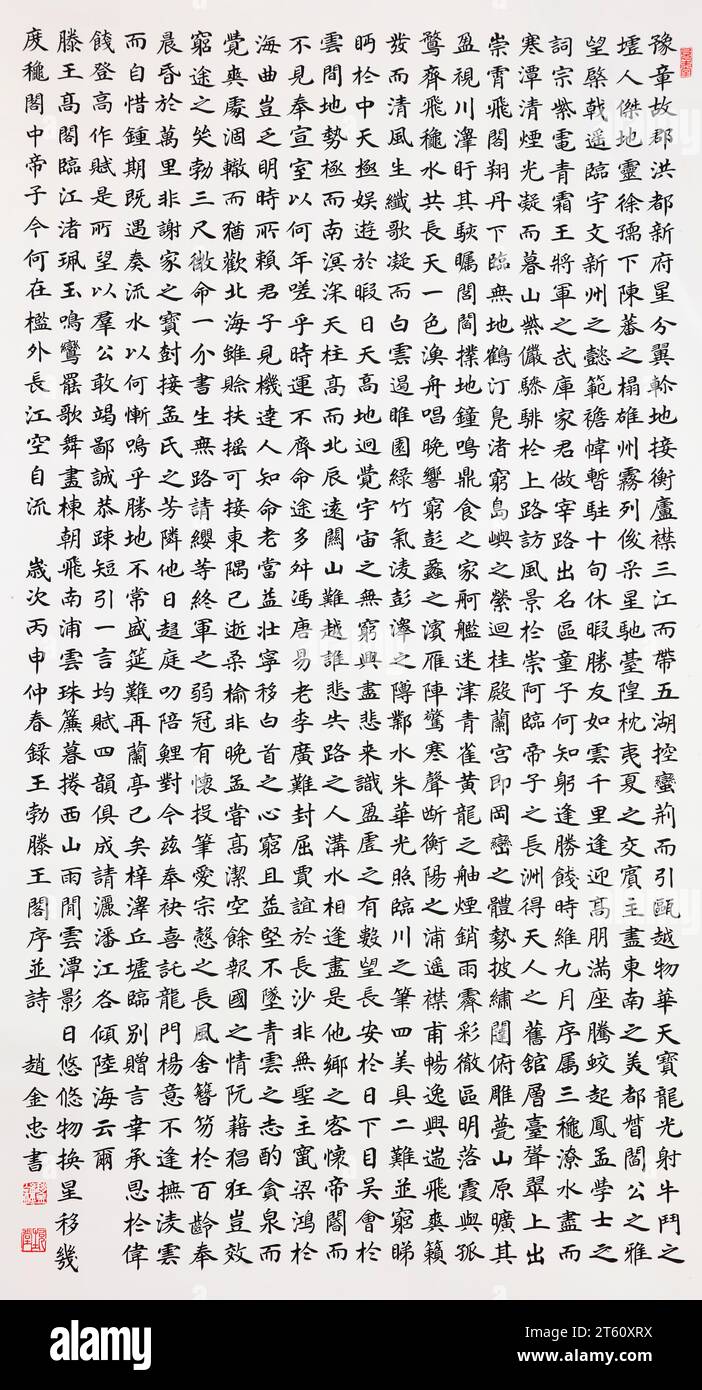 豫章故郡洪都新府星分翼軫地接衡廬襟三江而帶五湖控蠻荊而引甌越物華天寶龍光射牛鬥之
墟人傑地靈徐孺下陳蕃之榻雄州霧列俊采星馳臺隍枕夷夏之交賓主盡東南之美都督閻公之雅
望棨戟遥臨宇文新州之懿範襜幃暫駐十旬休暇勝友如雲千里逢迎高朋滿座騰蛟起鳳孟學士之
詞宗紫電青霜王將軍之武庫家君做宰路出名區童子何知躬逢勝餞時維九月序属三穐潦水盡而
寒潭清煙光凝而暮山紫儼驂騑於上路訪風景於崇阿臨帝子之長洲得天人之舊館層臺聳翠上出
崇霄飛閣翔丹下臨無地鶴汀鳧渚窮島嶼之縈迴桂殿蘭宮即岡巒之體勢披繡闥俯雕甍山原曠其
盈視川澤盱其駭矚閭閻撲地鐘鳴鼎食之家舸艦迷津青雀黄龍之舳煙銷雨霽彩徹區明落霞與孤
鶩齊飛穐水共長天一色漁舟唱晚響窮彭蠡之濱雁陣驚寒聲断衡陽之浦遥襟甫暢逸興遄飛爽籟
發而清風生纖歌凝而白雲遏睢園緑竹氣凌彭澤之罇鄴水朱華光照臨川之筆四美具二難並窮睇
眄於中天極娱遊於暇日天高地迥覺宇宙之無窮興盡悲来識盈虚之有數望長安於日下目吳會於
雲間地勢極而南溟深天柱高而北辰遠關山難越誰悲失路之人溝水相逢盡是他鄉之客懷帝閽而
不見奉宣室以何年嗟乎時運不齊命途多舛馮唐易老李廣難封屈賈誼於長沙非無聖主竄梁鴻於
海曲豈乏明時所賴君子見機達人知命老當益壯寧移白首之心窮且益堅不墜青雲之志酌貪泉而
覺爽處涸轍而猶歡北海雖賒扶摇可接東隅已逝桑榆非晚孟嘗高潔空餘報國之情阮藉猖狂豈效
窮途之哭勃三尺微命一介書生無路請纓等終軍之弱冠有懷投筆愛宗慤之長風舍簪笏於百齡奉
晨昏於萬里非謝家之寶樹接孟氏之芳隣他日趨庭叨陪鯉對今兹奉袂喜託龍門楊意不逢撫凌雲
而自惜鍾期既遇奏流水以何慚鳴乎勝地不常盛筵難再蘭亭已矣梓澤丘墟臨別贈言幸承恩於偉
餞登高作賦是所望以羣公敢竭鄙誠恭疎短引一言均賦四韻俱成請灑潘江各傾陸海云爾
滕王高閣臨江渚珮玉鳴鸞罷歌舞畫棟朝飛南浦雲珠簾暮捲西山雨閒雲潭影日悠悠物換星移幾
度穐閣中帝子今何在檻外長江空自流 歲次丙申仲春録王勃滕王閣序並詩 趙金忠書
alamy
Image ID: 2T60XRX
www.alamy.com